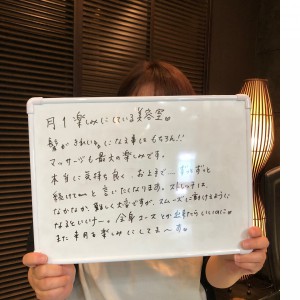 月1 楽しみにしている美容室。
髪がきれいになる事はもちろん!!
マッサージも最大の楽しみです。
本当に気持ち良く、おとまで… ずっとずっと
続けてーと言いたくなります。ストレッチは、
なかなか、難しく大変ですが、スムーズに動けるように
なるといいナー。全身コースとか出来たらいいのに。
また来月を楽しみにしてまーす。